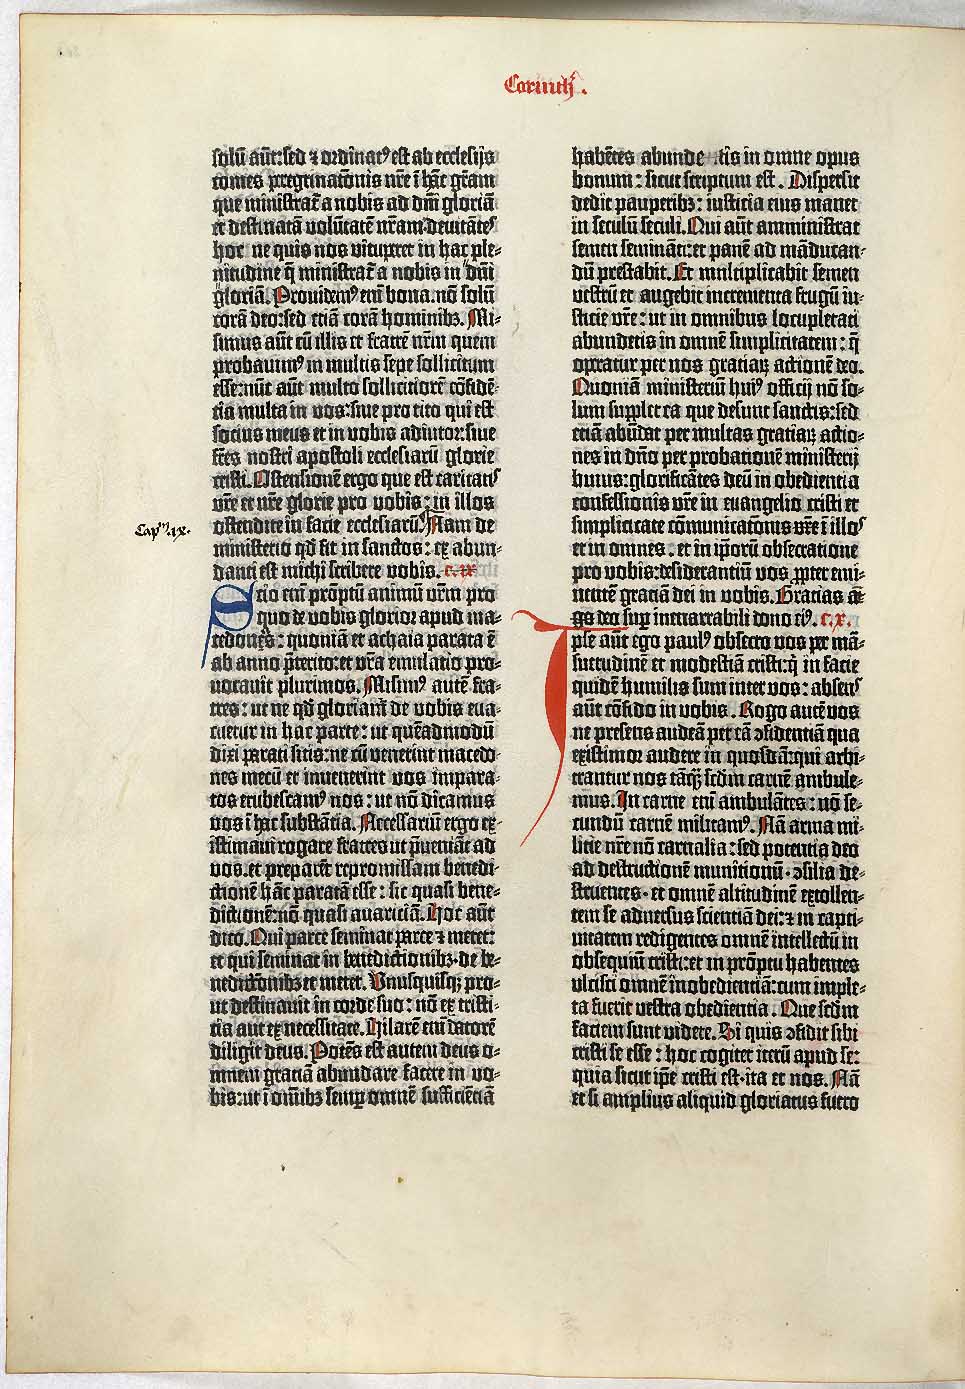 Corinth.
solū aūt: sed ⁊ ordinatꝰ est ab ecclesijs
comes ꝑegrinatōnis nr̄e ī hāc grām
que ministrat̄ a nobis ad dn̄i gloriā
et destinatā volūtatē nr̄am: deuitātesꝰ
hoc ne quis nos vituꝑet in hac ple⸗
nitudine q̄ ministrat̄ a nobis in dn̄i
gloriā. Prouidemꝰ em̄ bona. nō solū
corā deo: sed etiā corā hominibꝫ. Mi⸗
simus aūt cū illis et fratrē nr̄m quem
probauimꝰ in multis sepe sollicitum
esse: nūc aūt multo sollicitiorē cōfidē⸗
tia multa in vos: siue pro tito qui est
socius meus et in vobis adiutor: siue
fr̄es nostri apostoli ecclesiarū glorie
cristi. Ostensionē ergo que est caritatꝭ
vr̄e et nr̄e glorie pro vobis: in illos
ostendite in facie ecclesiarū. Nam de
Cap.m ix.
ministerio qd̄ fit in sanctos: ex abun⸗
danti est michi scribere vobis. c. ix
Scio em̄ prōptū animū vr̄m pro
quo de vobis glorior apud ma⸗
cedones: quoniā et achaia parata ē
ab anno p̄terito: et vr̄a emulatio pro⸗
uocauit plurimos. Misimꝰ autē fra⸗
tres: ut ne qd̄ gloriam̄ de vobis eua⸗
cuetur in hac parte: ut quēadmodū
dixi ꝑarati sitis: ne cū venerint macedo⸗
nes mecū et inuenerint vos impara⸗
tos erubescamꝰ nos: ut nō dicamus
vos ī hac substātia. Necessariū ergo ex⸗
istimaui rogare fratres ut p̄ueniāt ad
vos. et preparēt repromissam benedi⸗
ctionē hāc paratā esse: sic quasi bene⸗
dictionē: nō quasi auariciā. Hoc aūt
dico. Qui parce seminat parce ⁊ metet:
et qui seminat in benedictionibꝫ. de be⸗
nedictōnibꝫ et metet. Vnusquisqꝫ pro⸗
ut destinauit in corde suo: nō ex tristi⸗
tia aut ex necessitate. Hilarē em̄ datorē
diligit deus. Potēs est autem deus o⸗
mnem gratiā abundare facere in vo⸗
bis: ut ī om̄ibꝫ semꝑ omnē sufficiētiā
habētes abunde tis in omne opus
bonum: sicut scriptum est. Dispersit
dedit pauperibꝫ: iusticia eius manet
in seculū seculi. Qui aūt amministrat
semen semināti: et panē ad māducan⸗
dū prestabit. Et multiplicabit semen
vestrū et augebit incrementa frugū iu⸗
sticie vr̄e: ut in omnibus locupletati
abundetis in omnē simplicitatem: q̄
operatur per nos gratiaꝝ actionē deo.
Quoniā ministeriū huiꝰ officij nō so⸗
lum supplet ea que desunt sanctis: sed
etiā abūdat per multas gratiaꝝ actio⸗
nes in dn̄o per probationē ministerij
huius: glorificātes deū in obedientia
confessionis vr̄e in euangelio cristi et
simplicitate cōmunicatōnis vr̄e ī illoꝰ
et in omnes. et in ip̄orū obsecratione
pro vobis: desiderantiū vos ꝓpter emi⸗
nentē gratiā dei in vobis. Gratias a⸗
go deo suꝑ inenarrabili dono eiꝰ. c. x.
Ipse aūt ego paulꝰ obsecro vos ꝑ mā⸗
suetudinē et modestiā cristi: q̄ in facie
quidē humilis sum inter vos: absensꝰ
aūt cōfido in vobis. Rogo autē vos
ne presens audeā per eā ꝯfidentiā qua
existimor audere in quosdā: qui arbi⸗
trantur nos tāqꝫ scd̄m carnē ambule⸗
mus. In carne em̄ ambulātes: nō se⸗
cundū carnē militamꝰ. Nā arma mi⸗
litie nr̄e nō carnalia: sed potentia deo
ad destructionē munitionū. ꝯsilia de⸗
struentes. et omnē altitudinē extollen⸗
tem se aduersus scientiā dei: ⁊ in capti⸗
uitatem redigentes omnē intellectū in
obsequiū cristi: et in prōptu habentes
vlcisci omnē inobedientiā: cum imple⸗
ta fuerit vestra obedientia. Que scd̄m
faciem sunt videte. Si quis ꝯfidit sibi
cristi se esse: hoc cogitet iterū apud se:
quia sicut ip̄e cristi est. ita et nos. Nā
et si amplius aliquid gloriatus fuero